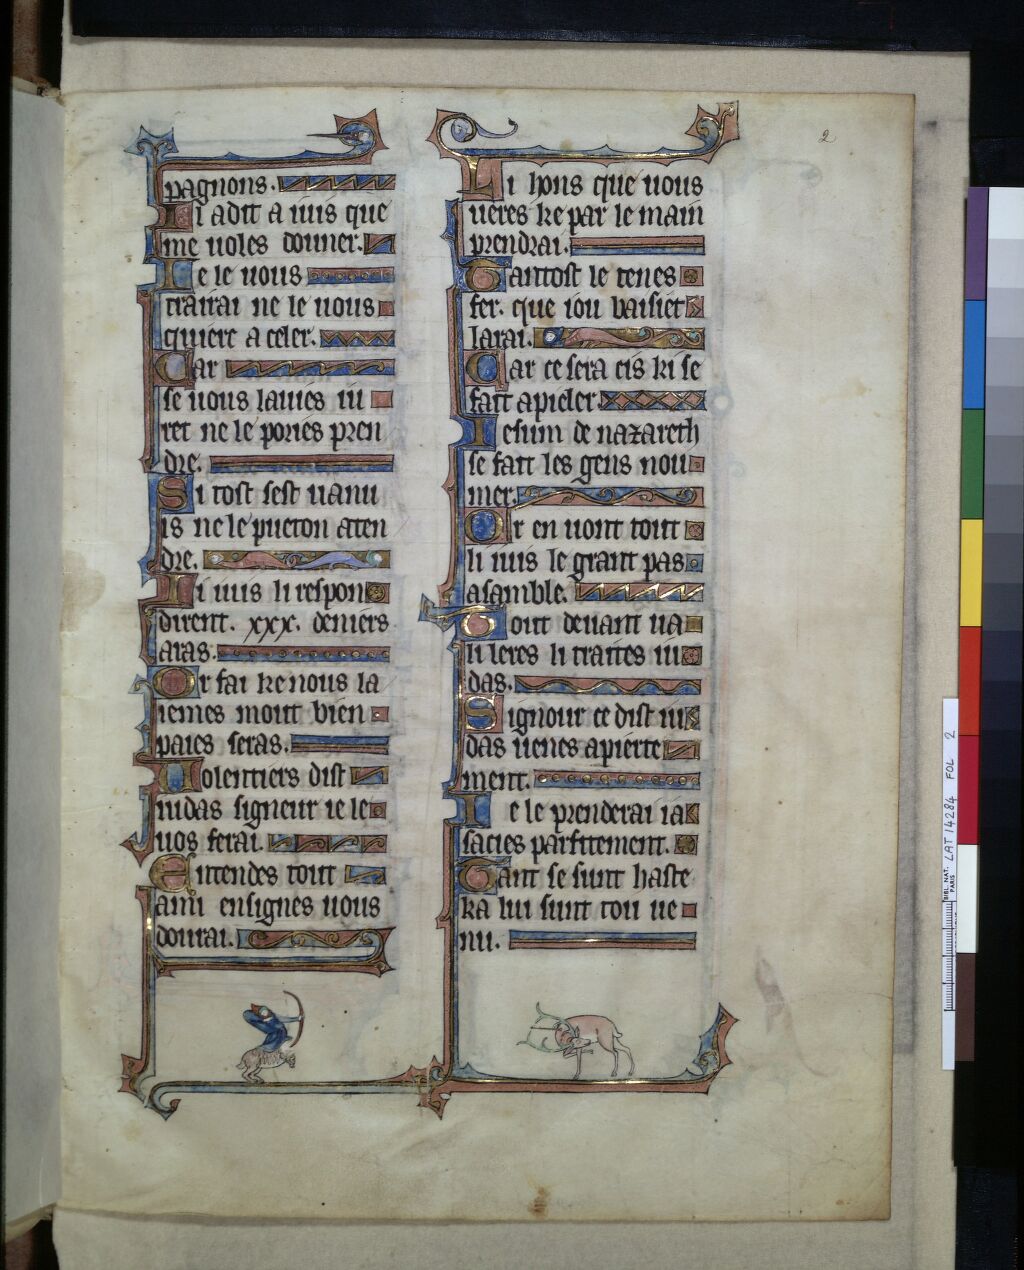 pagnons.
Li a dit a iuis que
me uoles donner.
Je le uous
traitrai ne le uous
quierc a celer.
Car
se uous lauies iu
ret ne le pories pren
dre.
Si tost sest uanu
is ne le puet on aten
dre.
Li iuis li respon
dirent. xxx. deniers
aras.
Or fai ke nous la
iemes mout bien
paies seras.
Uolentiers dist
iudas signeur ie le
uos ferai.
Entendes tout
ami ensignes uous
dourai.
Li hons que uous
ueres ke par le main
prendrai.
Tantost le tenes
fer. que iou baisiet
larai.
Car ce sera cis ki se
fait apieler
Iesum de nazareth
se fait les gens nou
mer.
Or en uont tout
li iuis le grant pas
asamble.
Tout deuant ua
li leres li traites iu
das.
Signour ce dist iu
das uenes apierte
ment.
Je le prenderai ia
sacies parfitement.
Tant se sunt haste
ka lui sunt tou ue
nu.
2
BIBL. NAT. PARIS
LAT 14284 FOL 2